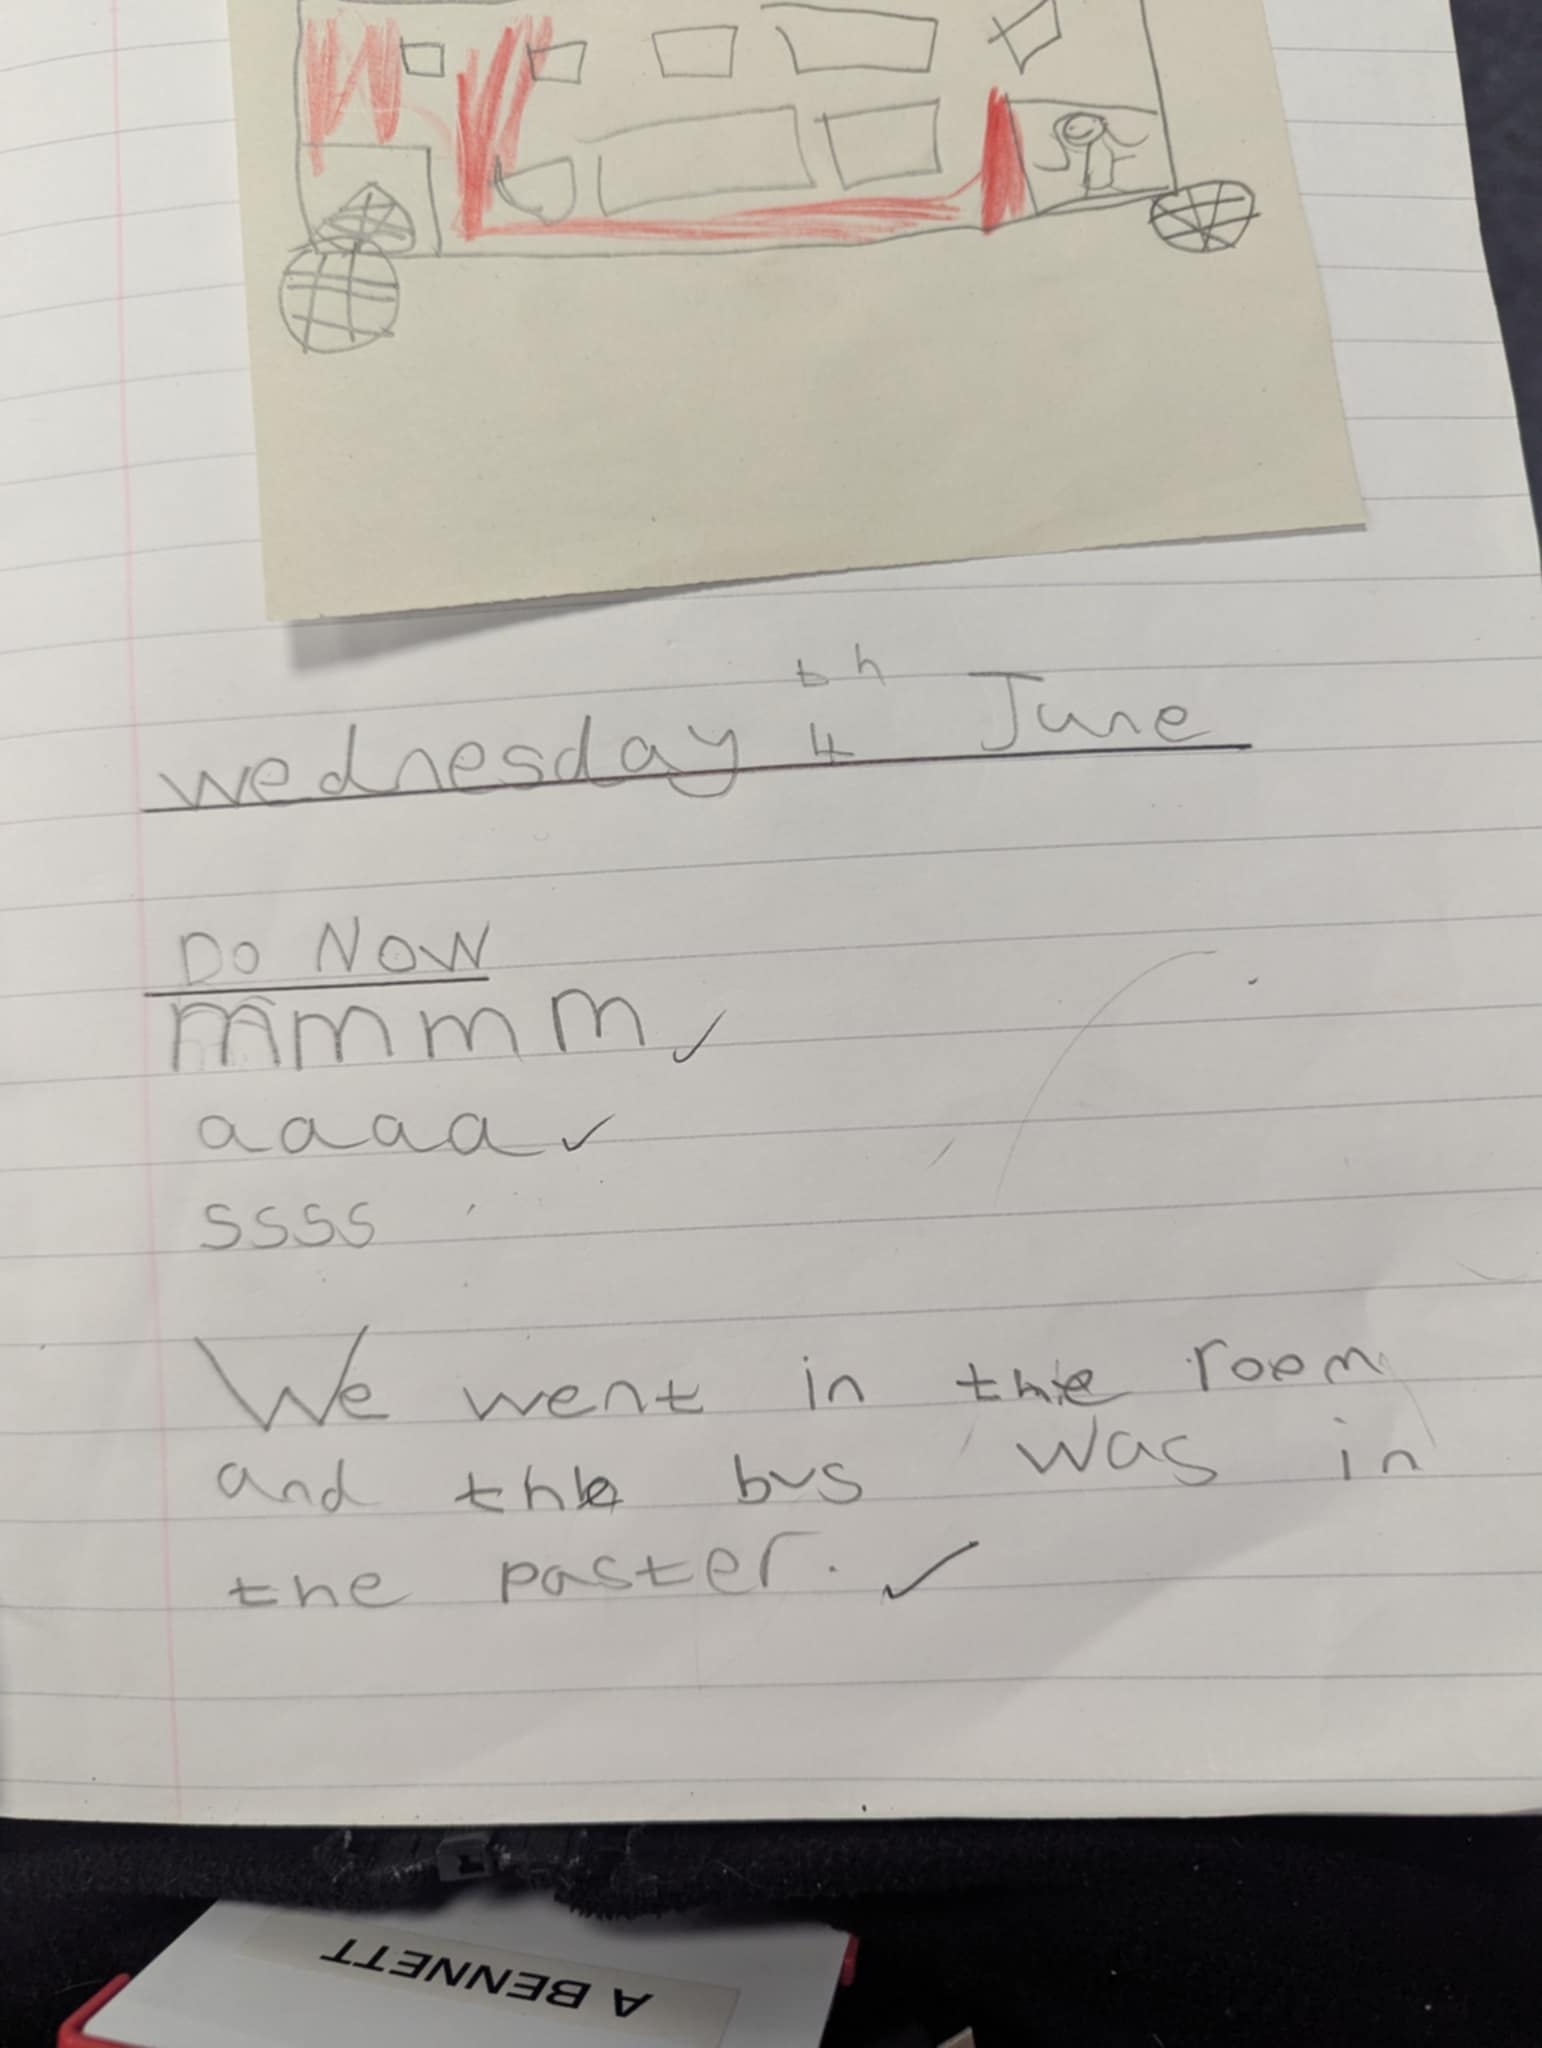 wednesday 4th June
Do Now
mmmm ✓
aaaa ✓
ssss
We went in the room
and the bus was in
the paster. ✓
A BENNETT